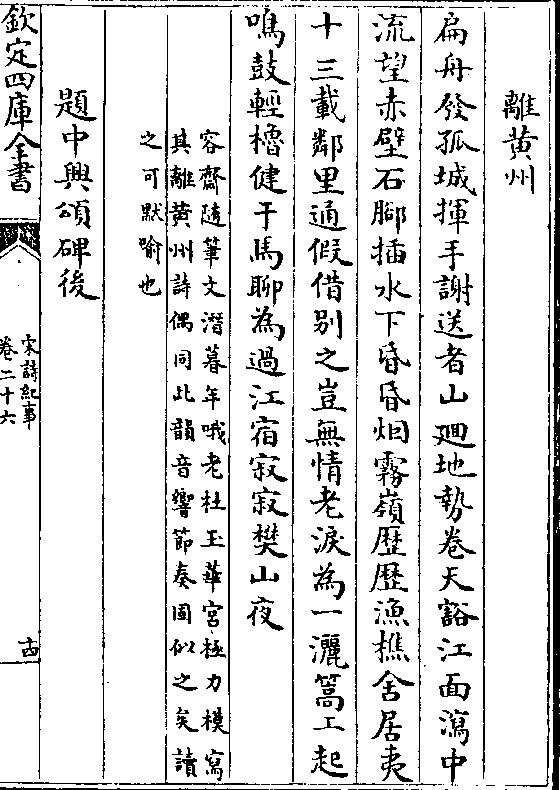 離黄州
扁舟發孤城揮手謝送者山廻地勢卷天豁江面瀉中
流望赤壁石腳插水下昏昏烟霧嶺歴歴漁樵舍居夷
十三載鄰里通假借别之豈無情老淚為一灑篙工起
鳴鼓輕櫓健于馬聊為過江宿寂寂樊山夜
容齋隨筆文潛暮年哦老杜玉華宫極力模寫
其離黄州詩偶同此韻音響節奏固似之矣讀
之可默喻也
題中興頌碑後
欽定四庫全書
宋詩紀事
卷二十六
十四